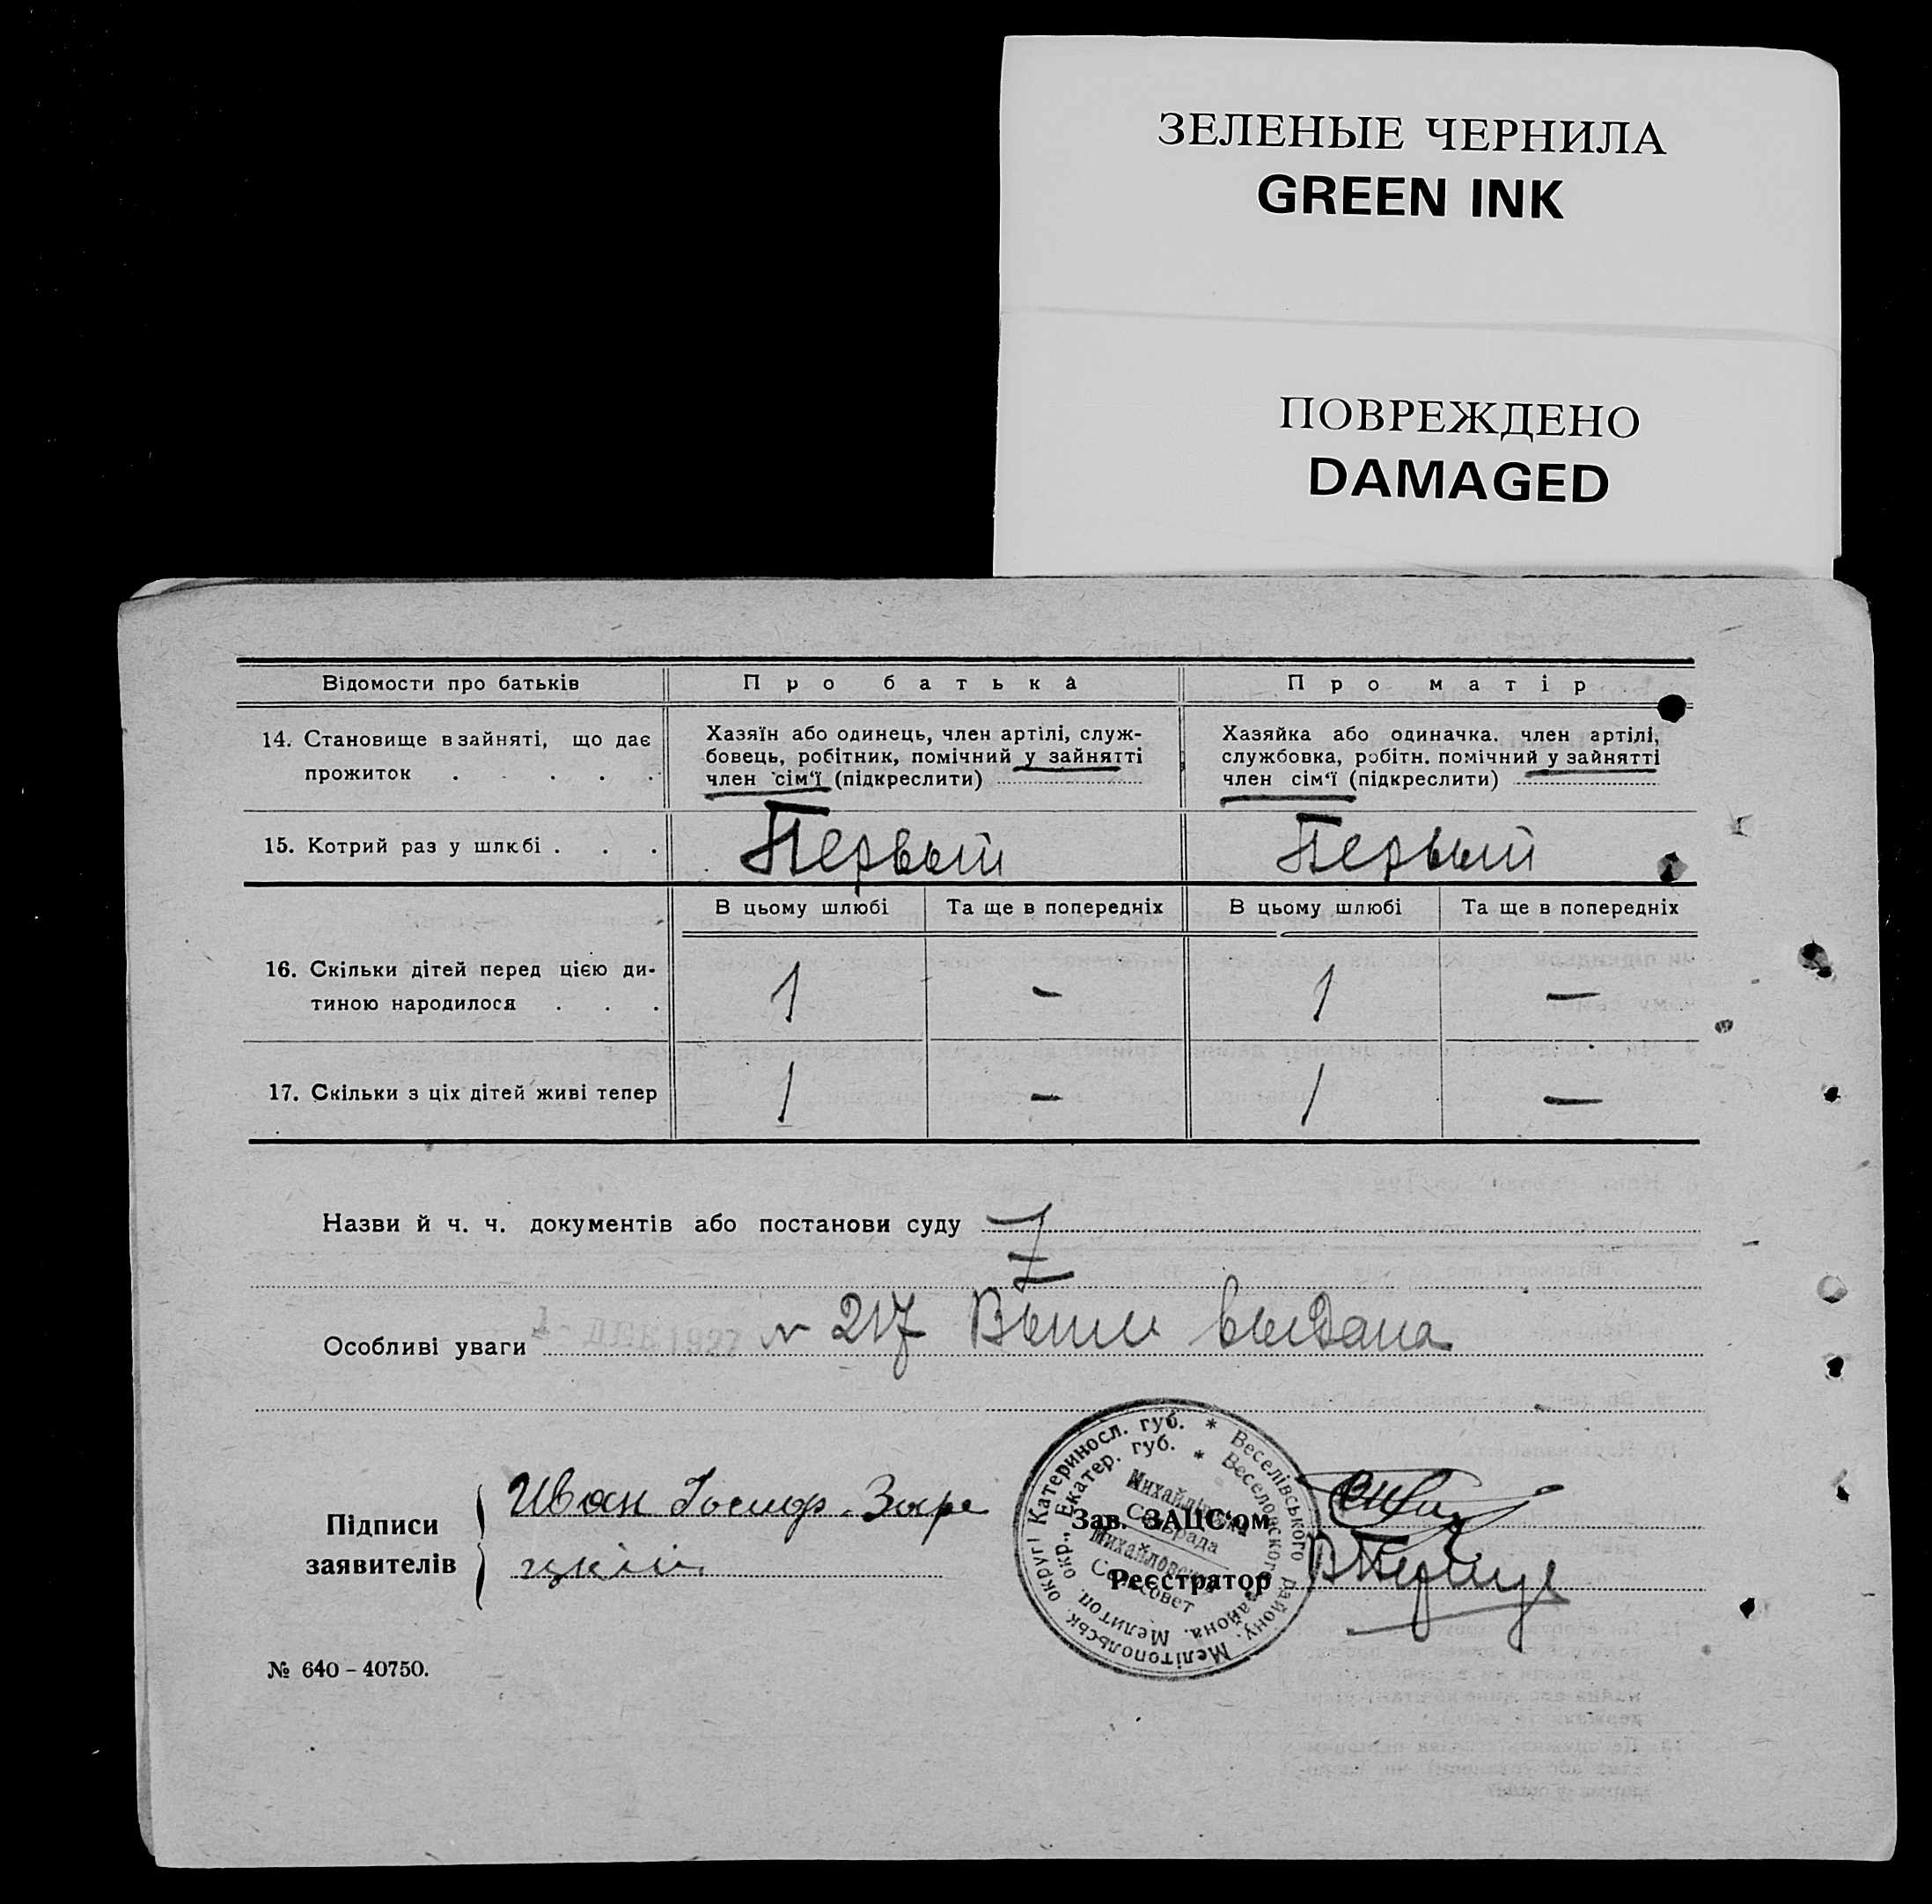 ЗЕЛЕНЫЕ ЧЕРНИЛА
GREEN INK
ПОВРЕЖДЕНО
DAMAGED
Відомости про батьків
Про батька
Про матір
14. Становище в зайняті, що дає
прожиток . . . . .
Хазяїн або одинець, член артілі, служ-
бовець, робітник, помічний у зайнятті
член сім'ї (підкреслити)
Хазяйка або одиначка. член артілі,
службовка, робітн. помічний у зайнятті
член сім'ї (підкреслити)
15. Котрий раз у шлюбі . . .
Первый
Первый
В цьому шлюбі
Та ще в попередніх
В цьому шлюбі
Та ще в попередніх
16. Скільки дітей перед цією ди-
тиною народилося . . .
1
-
1
-
17. Скільки з ціх дітей живі тепер
1
-
1
-
Назви й ч. ч. документів або постанови суду
Особливі уваги
1 - ДЕК 1927
№ 217
выдана
Підписи
заявителів
Иван
Катериносл. губ. * Веселівського району, Мелітопольськ. округі
Екатер. губ. * Веселовского района. Мелитоп. окр.,
Михайлівська
Сільрада
Михайловский
Сельсовет
Зав. ЗАЦС'ом
Реєстратор
№ 640 - 40750.